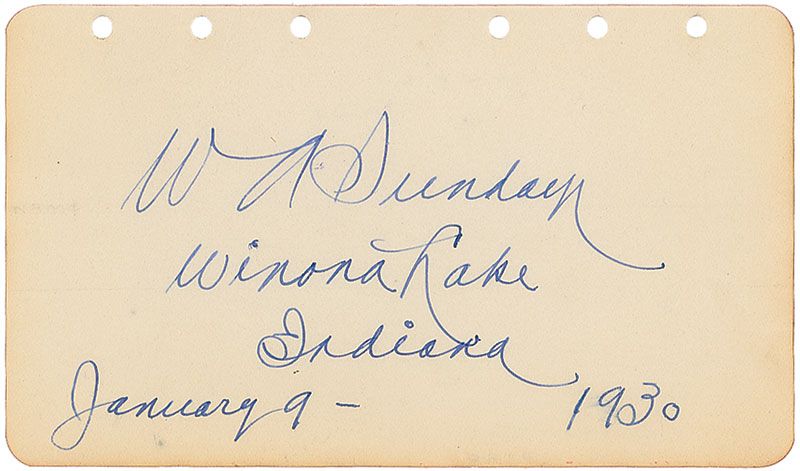 W A Sunday
Winona Lake
Indiana
January 9 - 1930